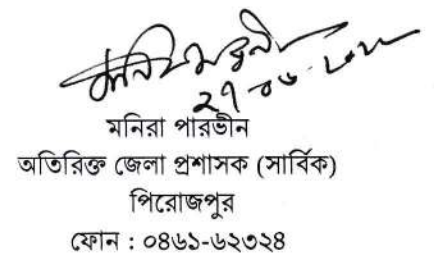 মনিরা পারভীন
অতিরিক্ত জেলা প্রশাসক (সার্বিক)
পিরোজপুর
ফোন : ০৪৬১-৬২৩২৪